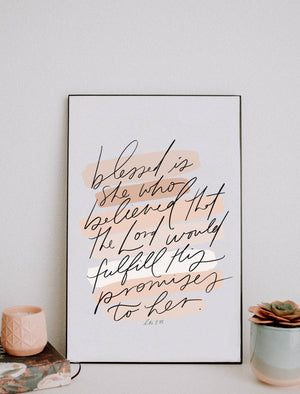 blessed is
she who
believed that
the Lord would
fulfill His
promises
to her.